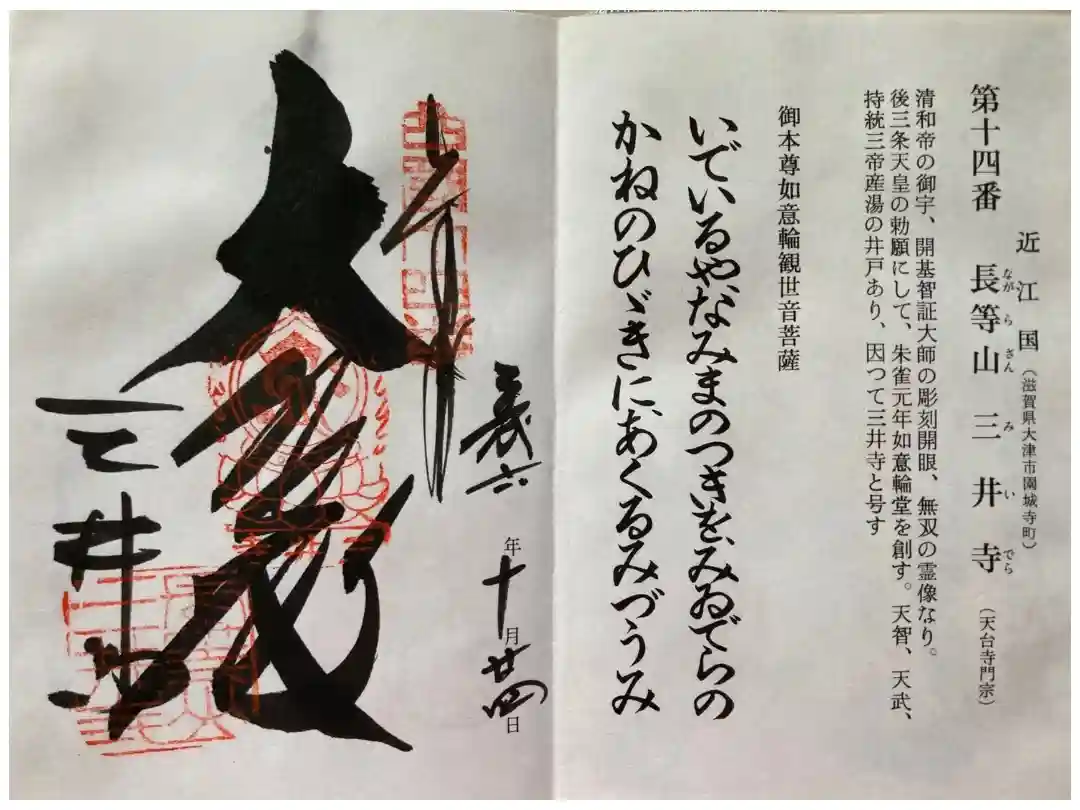 近江国（滋賀県大津市園城寺町）
第十四番 長等山 三井寺（天台寺門宗）
ながらさん みいでら
清和帝の御宇、開基智証大師の彫刻開眼、無双の霊像なり。
後三条天皇の勅願にして、朱雀元年如意輪堂を創す。天智、天武、
持統三帝産湯の井戸あり、因つて三井寺と号す
御本尊如意輪観世音菩薩
いでいるや、なみまのつきを、みゐでらの
かねのひゞきに、あくるみづうみ
六年十月廿四日
奉拝
大悲殿
三井寺